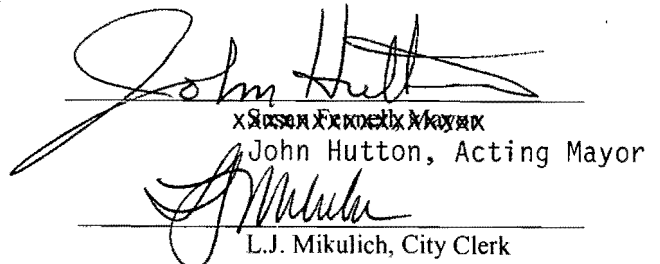 John Hutton
Susan Fennell, Mayor
John Hutton, Acting Mayor
LJ Mikulich
L.J. Mikulich, City Clerk